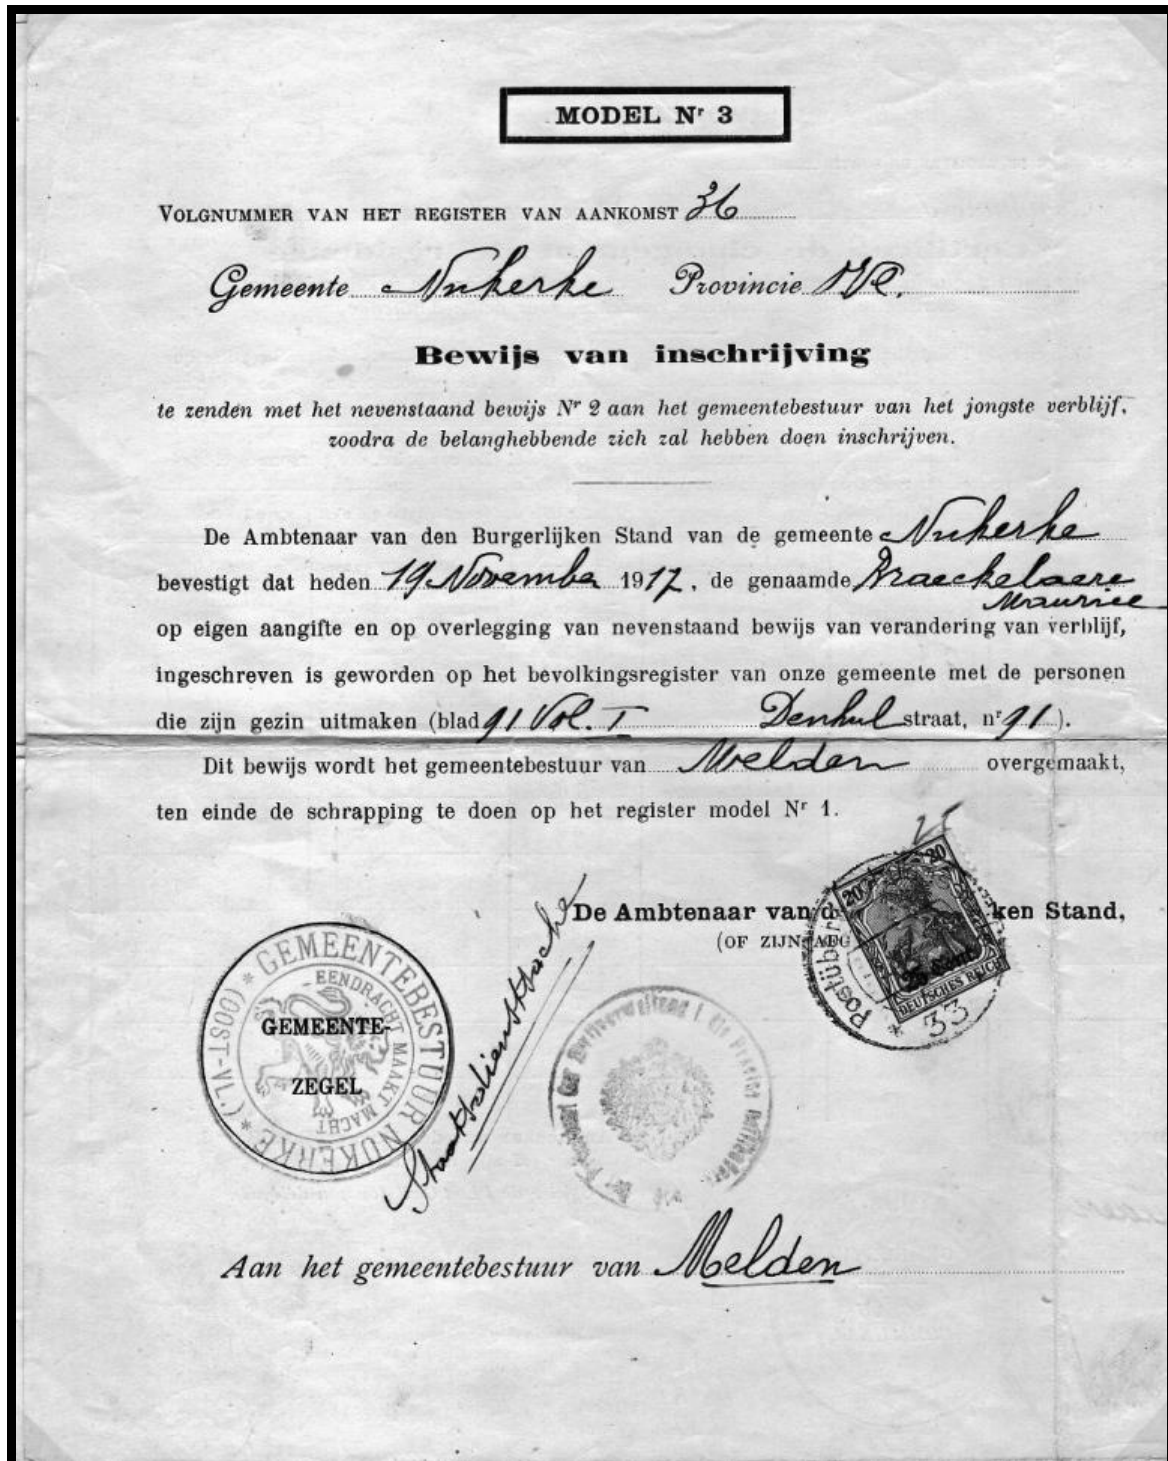 MODEL Nr 3
VOLGNUMMER VAN HET REGISTER VAN AANKOMST 36
Gemeente Nukerke Provincie OVl.
Bewijs van inschrijving
te zenden met het nevenstaand bewijs Nr 2 aan het gemeentebestuur van het jongste verblijf,
zoodra de belanghebbende zich zal hebben doen inschrijven.
De Ambtenaar van den Burgerlijken Stand van de gemeente Nukerke
bevestigt dat heden 19 November 1917, de genaamde Braeckelaere
Maurice
op eigen aangifte en op overlegging van nevenstaand bewijs van verandering van verblijf,
ingeschreven is geworden op het bevolkingsregister van onze gemeente met de personen
die zijn gezin uitmaken (blad 91 Vol. I Denhul straat, nr 91).
Dit bewijs wordt het gemeentebestuur van Melden overgemaakt,
ten einde de schrapping te doen op het register model Nr 1.
25
De Ambtenaar van d ken Stand,
(OF ZIJN
20 20
25 Cent.
DEUTSCHES REICH
Postüber
* 33
* GEMEENTEBESTUUR NUKERKE * (OOST-VL.)
EENDRACHT MAAKT MACHT
GEMEENTE-
ZEGEL
Der Präsident der Zivilverwaltung f. die Provinz Ostflandern
Aan het gemeentebestuur van Melden